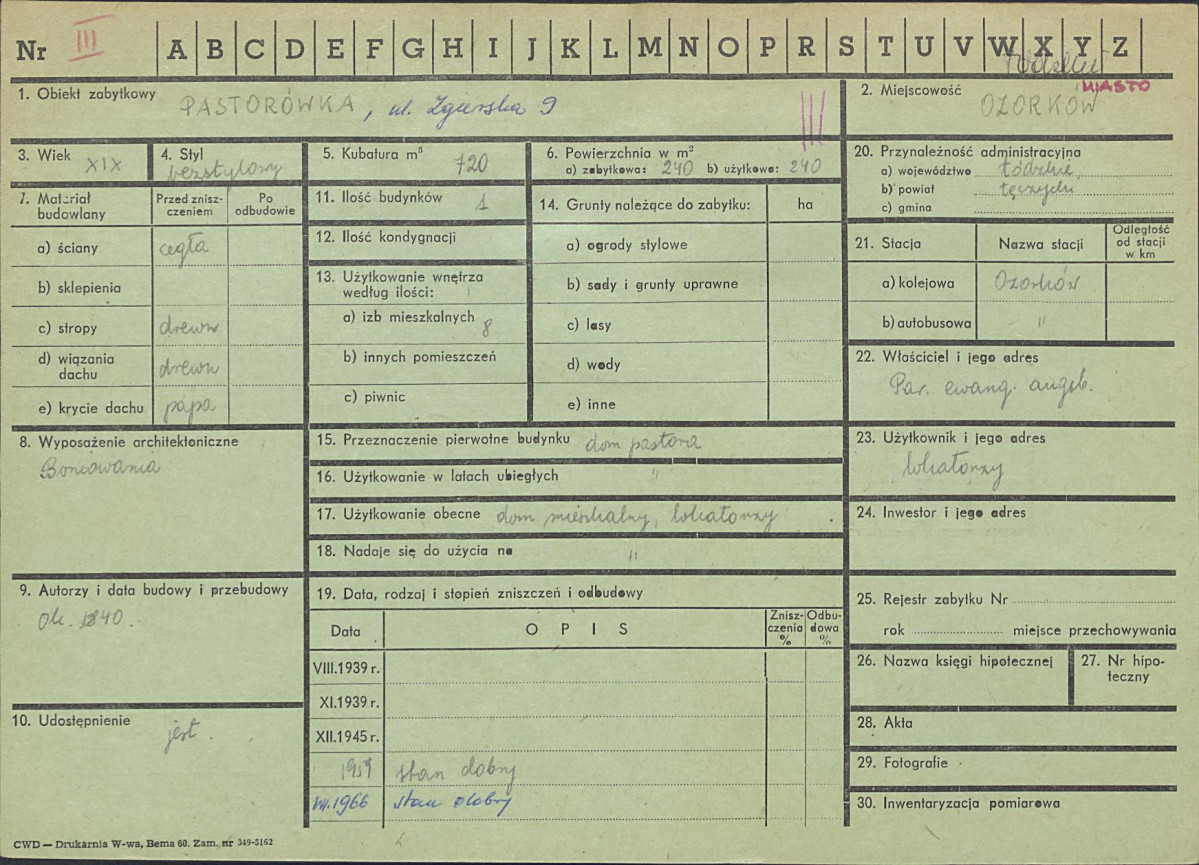 Nr III A B C D E F G H I J K L M N O P R S T U V W X Y Z
1. Obiekt zabytkowy PASTORÓWKA, ul. Zgierska 9 III
2. Miejscowość MIASTO
OZORKÓW
3. Wiek XIX
4. Styl
bezstylowy
5. Kubatura m³ 720
6. Powierzchnia w m²
a) zabytkowa: 240 b) użytkowa: 240
7. Materiał budowlany
Przed zniszczeniem
Po odbudowie
a) ściany cegła
b) sklepienia
c) stropy drewn
d) wiązania dachu drewn
e) krycie dachu papa
8. Wyposażenie architektoniczne
Boniowania
9. Autorzy i data budowy i przebudowy
Ok. 1840.
10. Udostępnienie
jest.
11. Ilość budynków 1
12. Ilość kondygnacji
13. Użytkowanie wnętrza
według ilości:
a) izb mieszkalnych 8
b) innych pomieszczeń
c) piwnic
14. Grunty należące do zabytku: ha
a) ogrody stylowe
b) sady i grunty uprawne
c) lasy
d) wody
e) inne
15. Przeznaczenie pierwotne budynku dom pastora
16. Użytkowanie w latach ubiegłych "
17. Użytkowanie obecne dom mieszkalny, lokatorzy
18. Nadaje się do użycia na "
19. Data, rodzaj i stopień zniszczeń i odbudowy
Data OPIS Zniszczenia % Odbudowa %
VIII.1939 r.
XI.1939 r.
XII.1945 r.
1959 stan dobry
VII.1966 stan dobry
20. Przynależność administracyjna
a) województwo Łódzkie
b) powiat łęczycki
c) gmina
21. Stacja Nazwa stacji Odległość od stacji w km
a) kolejowa Ozorków
b) autobusowa "
22. Właściciel i jego adres
Par. ewang. augsb.
23. Użytkownik i jego adres
lokatorzy
24. Inwestor i jego adres
25. Rejestr zabytku Nr
rok miejsce przechowywania
26. Nazwa księgi hipotecznej
27. Nr hipoteczny
28. Akta
29. Fotografie
30. Inwentaryzacja pomiarowa
CWD — Drukarnia W-wa, Bema 60. Zam. nr 349-5162